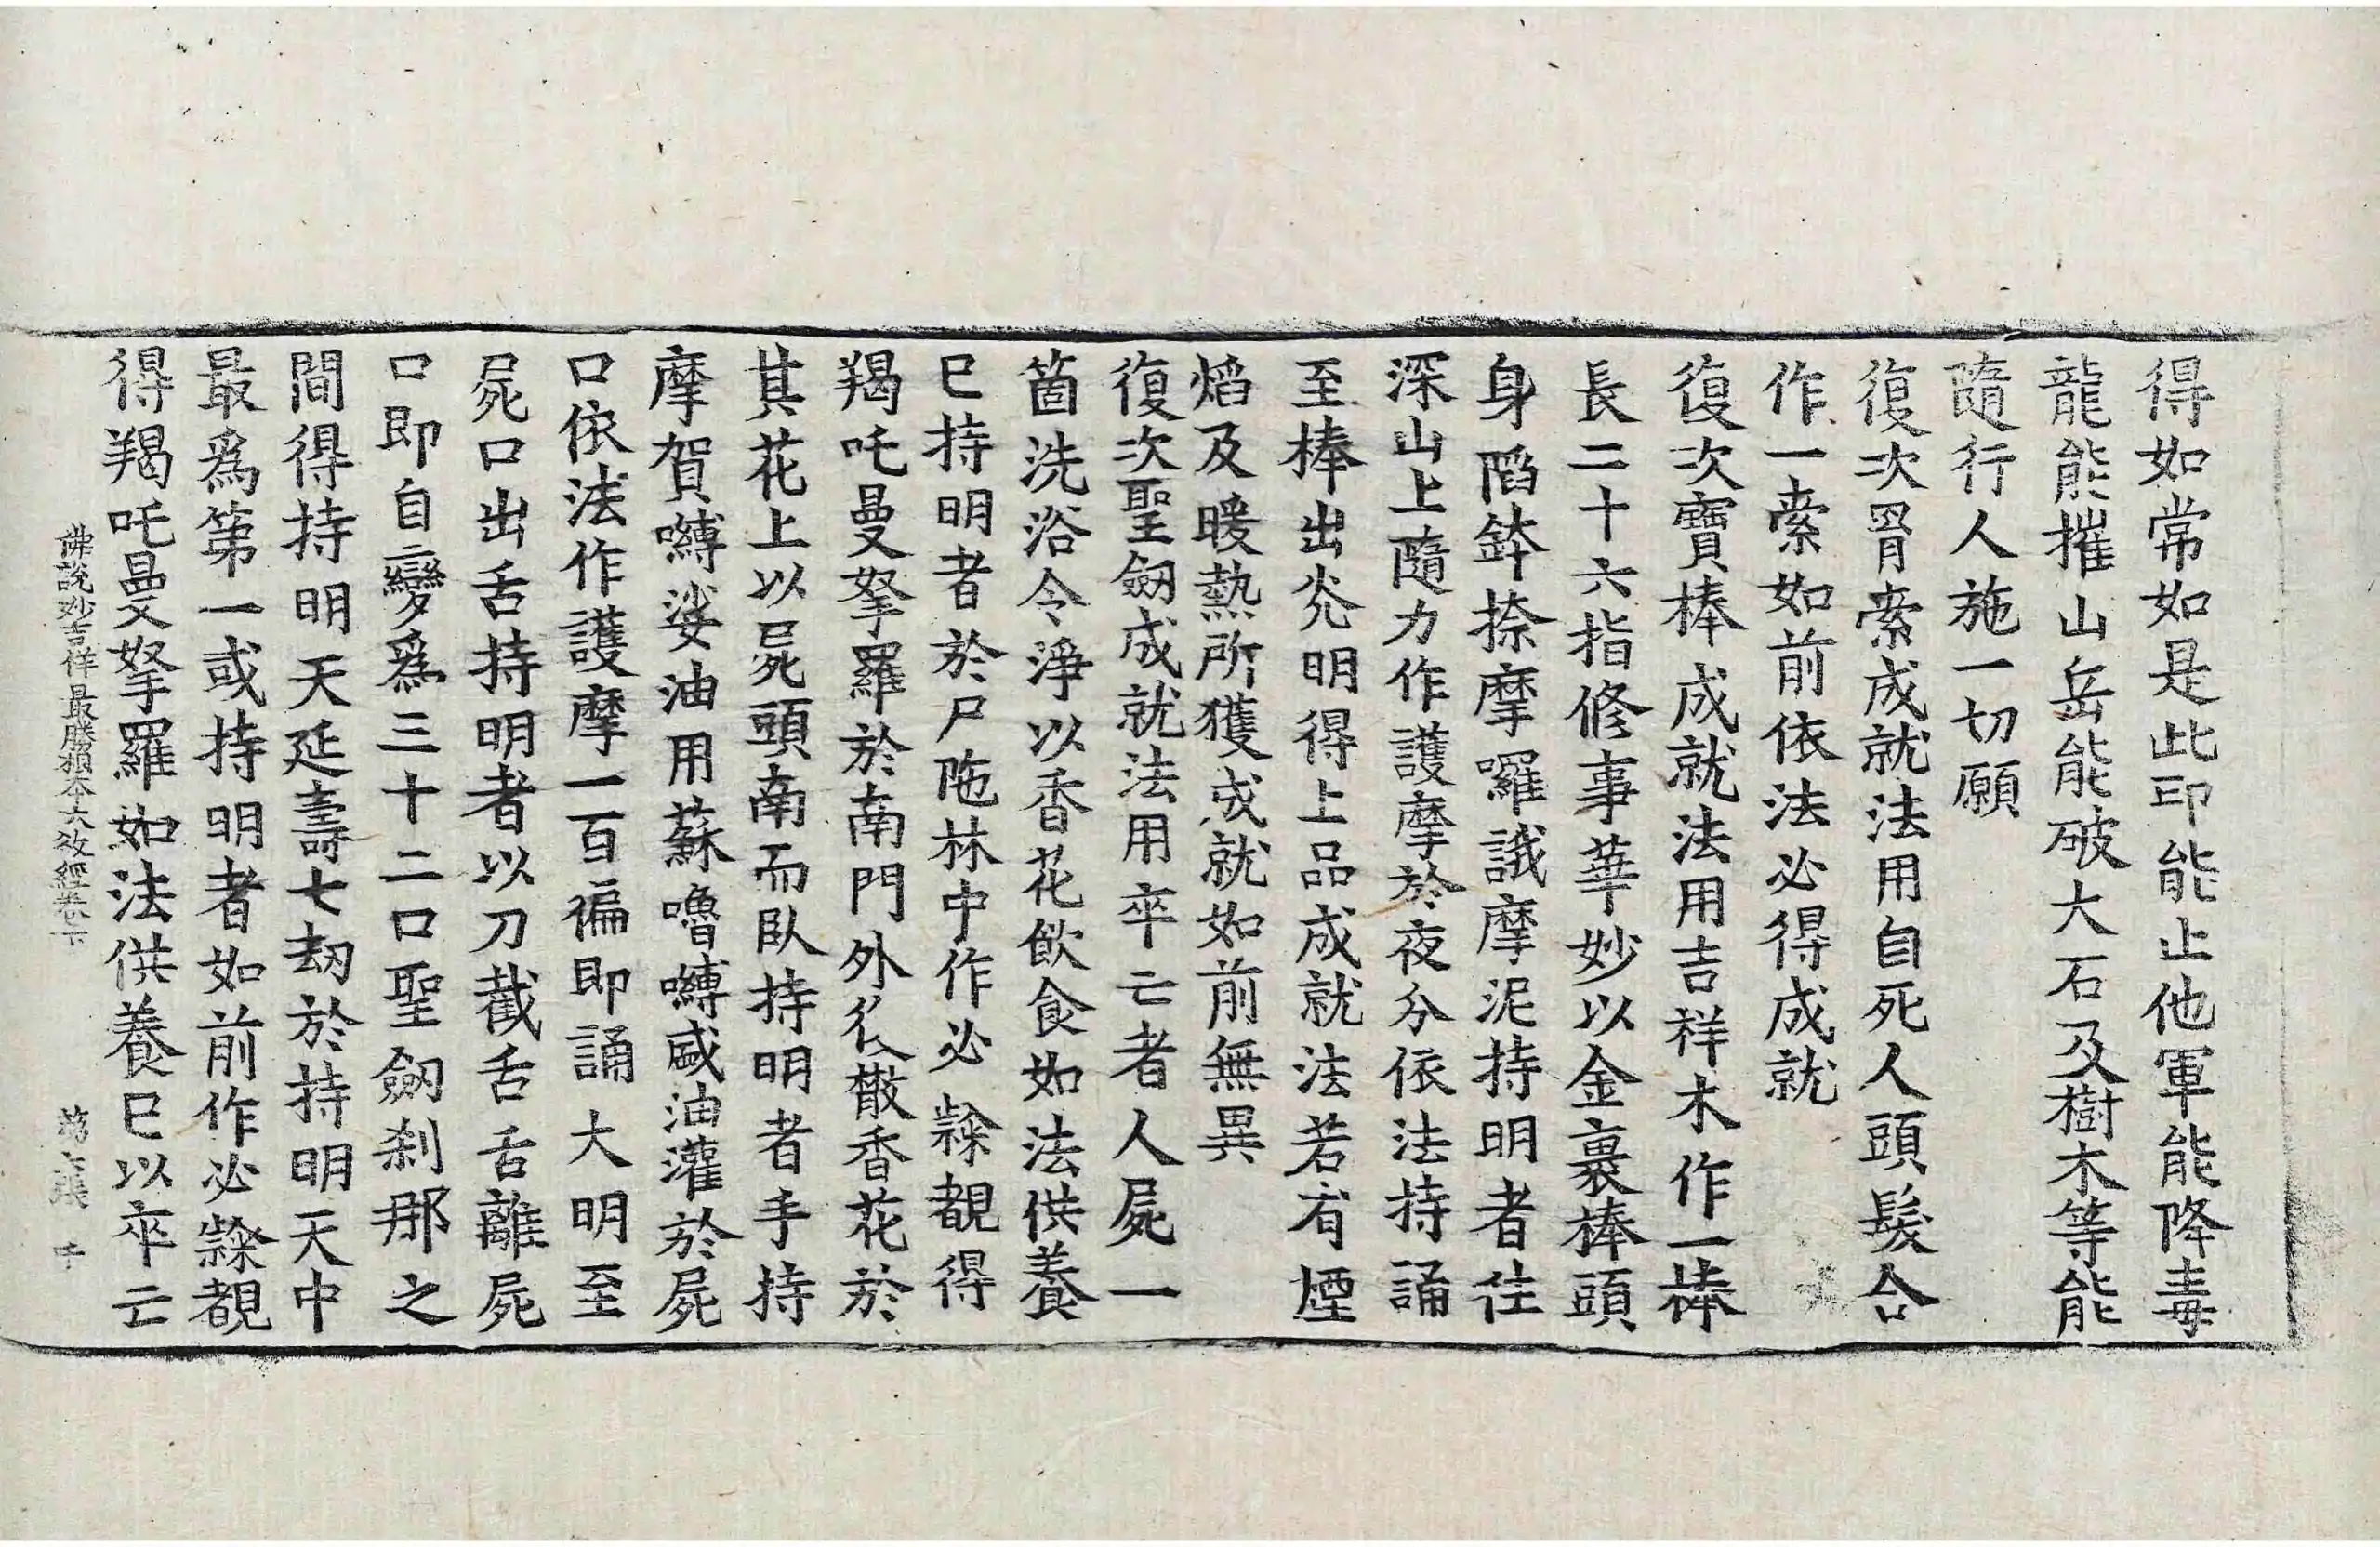 得如常如是此印能止他軍能降毒
龍能摧山岳能破大石及樹木等能
隨行人施一切願
復次罥索成就法用自死人頭髮合
作一索如前依法必得成就
復次寶棒成就法用吉祥木作一棒
長二十六指修事華妙以金裹棒頭
身謟鉢捺摩囉誐摩泥持明者往
深山上隨力作護摩於夜分依法持誦
至棒出光明得上品成就法若有煙
焰及暖熱所獲成就如前無異
復次聖劒成就法用卒亡者人屍一
箇洗浴令淨以香花飲食如法供養
已持明者於尸陁林中作必㷼覩得
羯吒曼拏羅於南門外㳂散香花於
其花上以屍頭南而臥持明者手持
摩賀嚩娑油用蘇嚕嚩盛油灌於屍
口依法作護摩一百徧即誦大明至
屍口出舌持明者以刀截舌舌離屍
口即自變爲三十二口聖劒剎那之
間得持明天延壽七劫於持明天中
最爲第一或持明者如前作必覩
得羯吒曼拏羅如法供養已以卒亡
佛說妙吉祥最勝根本大教經卷下 張 千